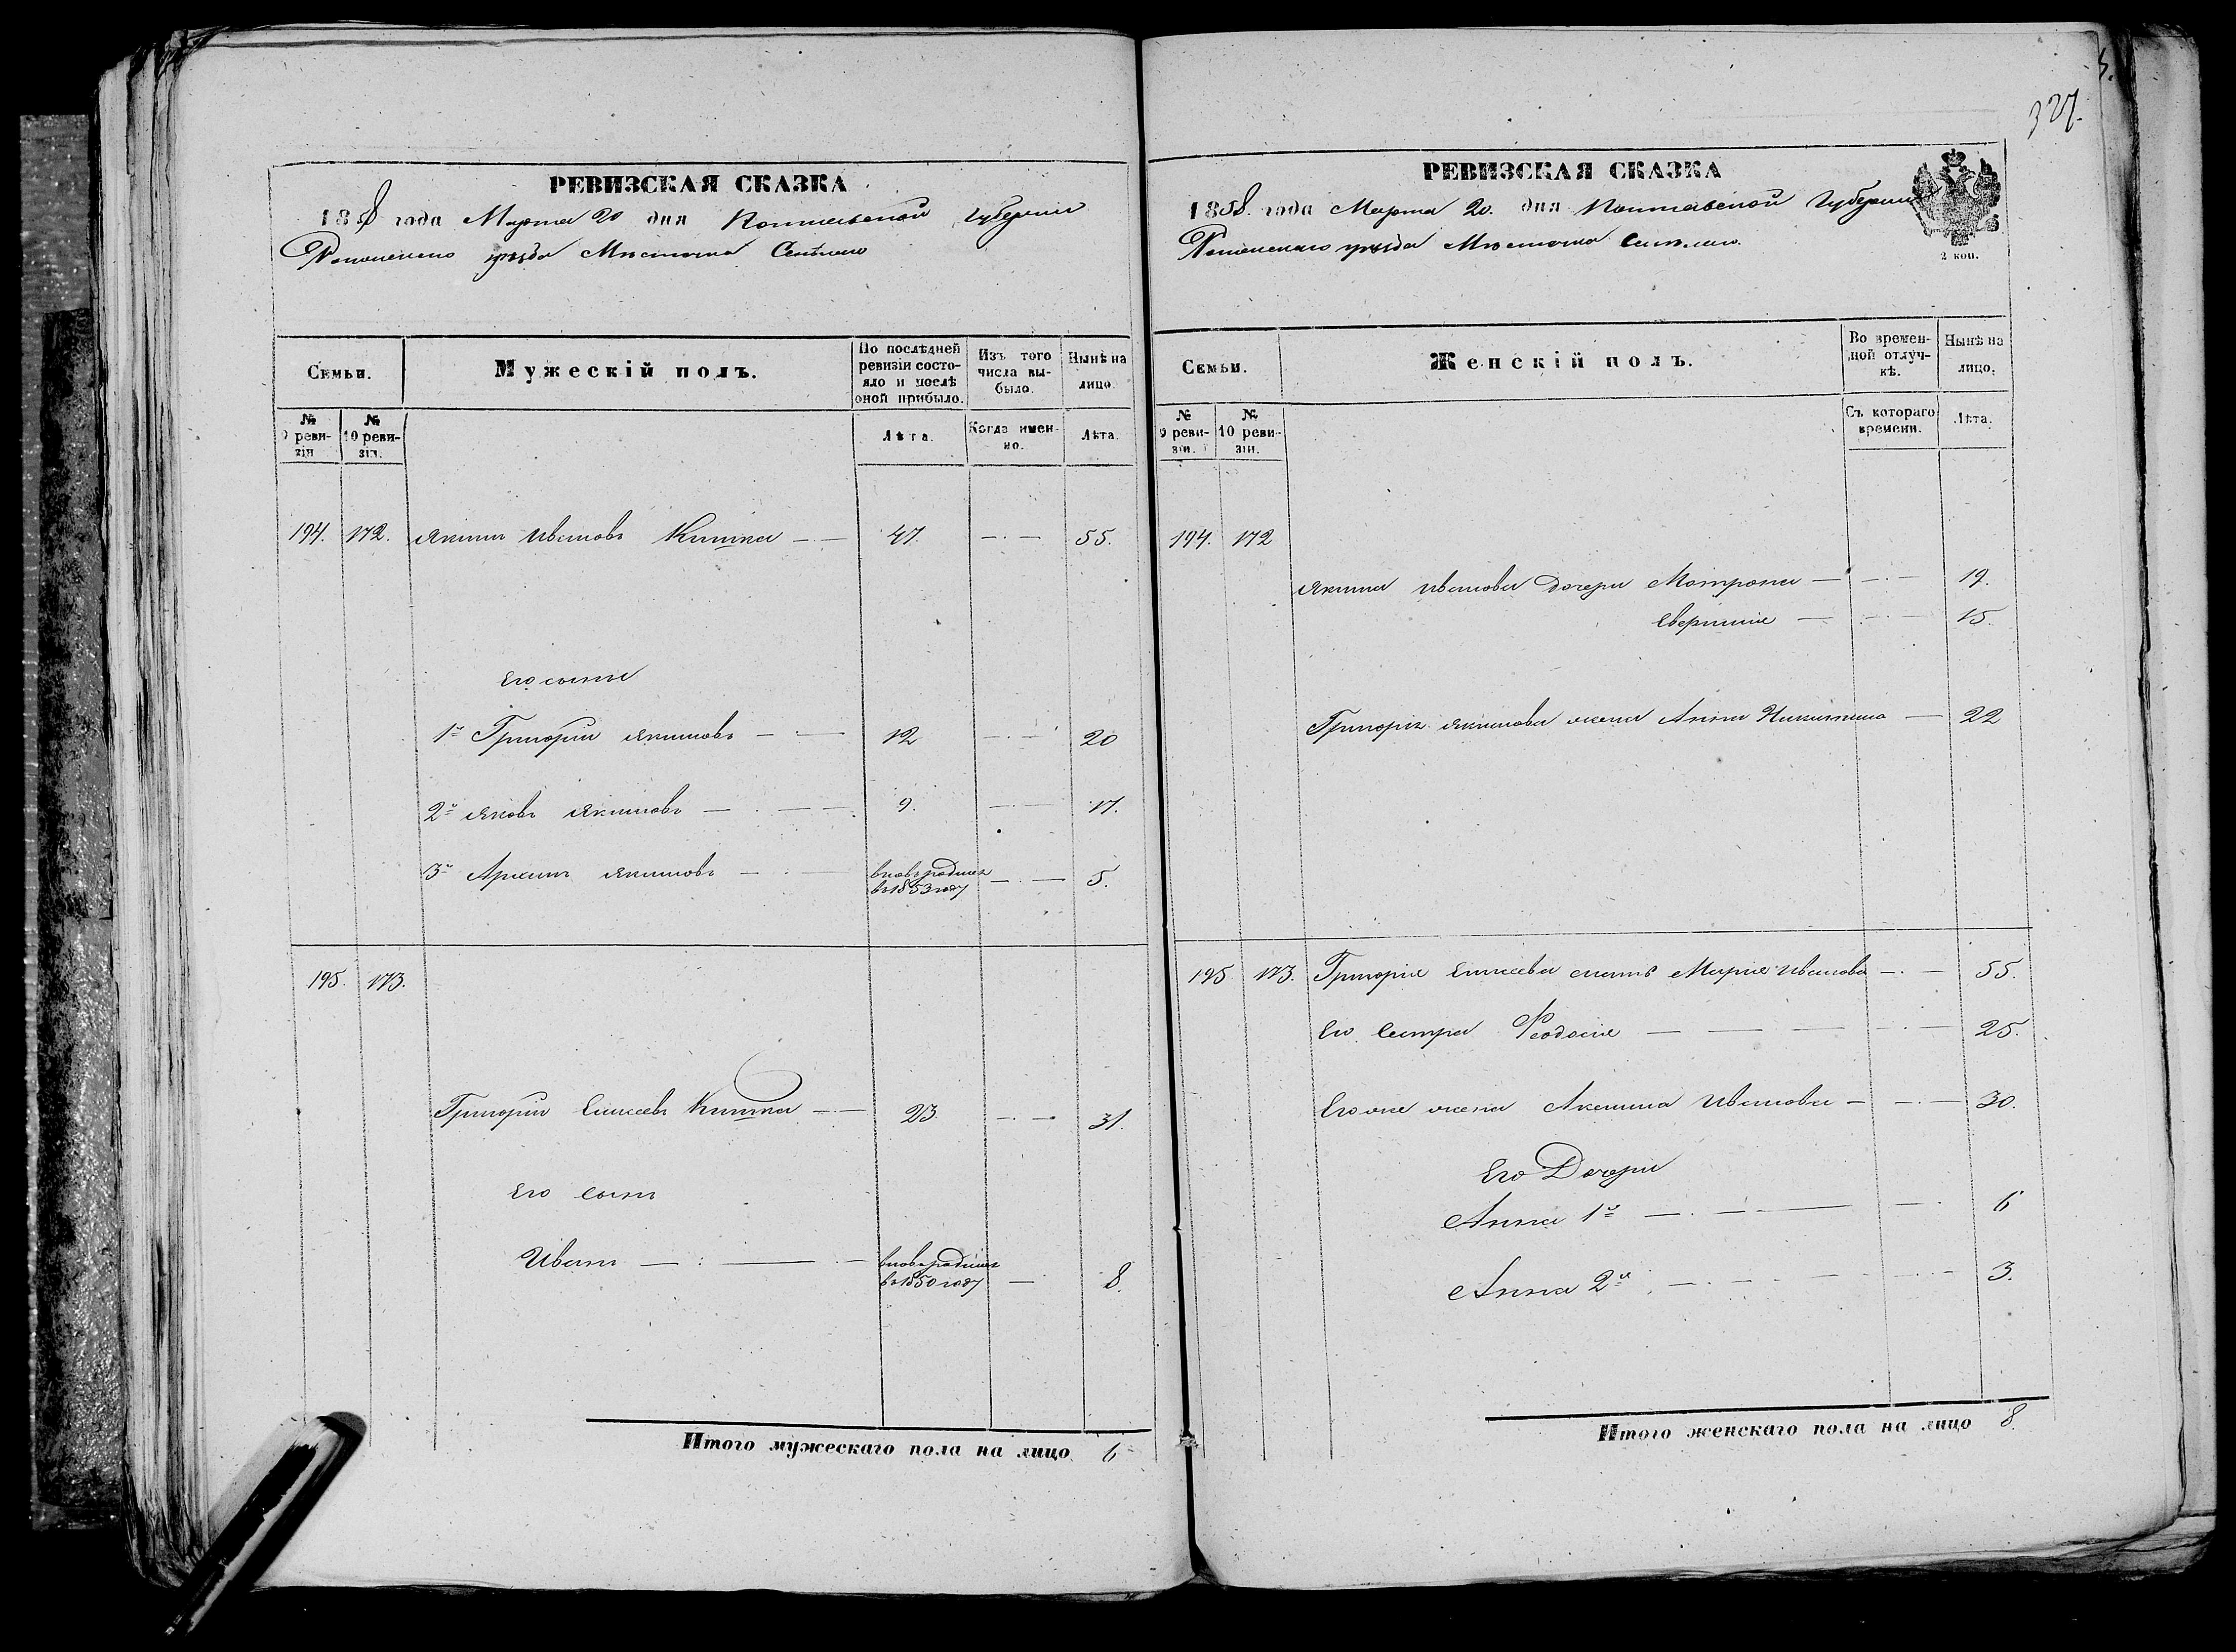 327.
РЕВИЗСКАЯ СКАЗКА
1858 года Марта 20 дня Полтавской Губернии
Роменского уезда Мѣстечка
Семьи.
Мужескій полъ.
По послѣдней ревизіи состояло и послѣ оной прибыло.
Изъ того числа выбыло.
Нынѣ на лицо.
№ 9 ревизіи
№ 10 ревизіи.
Лѣта.
Когда именно.
Лѣта.
194. 172. Якимъ Ивановъ Кишка 47. 55.
Его сыны
1й Григорій Якимовъ 12 20
2й Яковъ Якимовъ 9. 17.
3й Архипъ Якимовъ вновь родился 5.
въ 1853 году
195. 173.
Григорій Елисеевъ Кишка 23. 31.
Его сынъ
Иванъ вновь родился 8.
въ 1850 году
Итого мужескаго пола на лицо 6
РЕВИЗСКАЯ СКАЗКА
1858. года Марта 20. дня Полтавской Губернии
Роменскаго уезда Мѣстечка
2 коп.
Семьи.
Женскій полъ.
Во временной отлучкѣ.
Нынѣ на лицо.
№ 9 ревизіи.
№ 10 ревизіи.
Съ котораго времени.
Лѣта.
194. 172
Якима Иванова дочери Матрона 19.
15.
Григорія Якимова жена Анна Никитина 22
195 173. Григорія Елисеева мать Марія Иванова 55.
Его Сестра Феодосія 25.
Его же жена Акилина Иванова 30.
Его Дочери
Анна 1я 6
Анна 2я 3.
Итого женскаго пола на лицо 8.